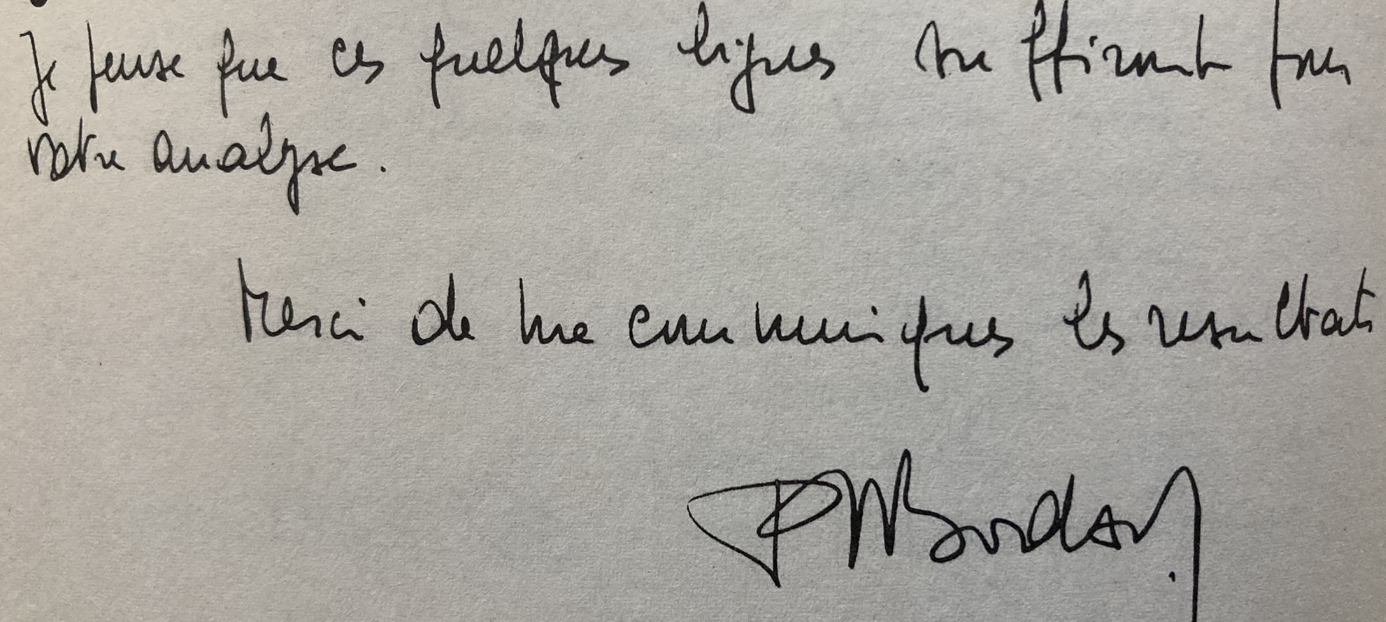 Je pense que ces quelques lignes suffiront pour
votre analyse.
Merci de me communiquer les resultats